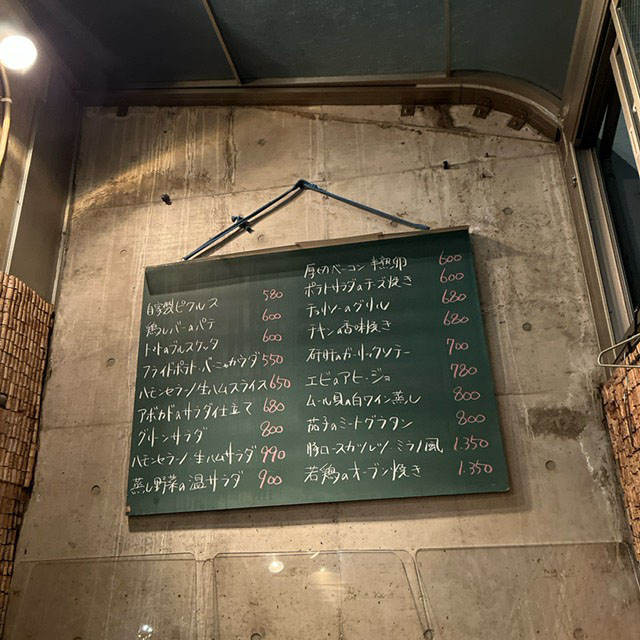 自家製ピクルス 580
鶏レバーのパテ 600
トマトのブルスケッタ 600
フライドポテト、バーニャカウダ 550
ハモンセラーノ 生ハムスライス 650
アボカドのサラダ仕立て 680
グリーンサラダ 800
ハモンセラーノ 生ハムサラダ 990
蒸し野菜の温サラダ 900
厚切ベーコン 半熟卵 600
ポテトサラダのチーズ焼き 600
チョリソーのグリル 680
チキンの香味焼き 680
砂肝のガーリックソテー 700
エビのアヒージョ 780
ムール貝の白ワイン蒸し 800
茄子のミートグラタン 800
豚ロースカツレツ ミラノ風 1.350
若鶏のオーブン焼き 1.350